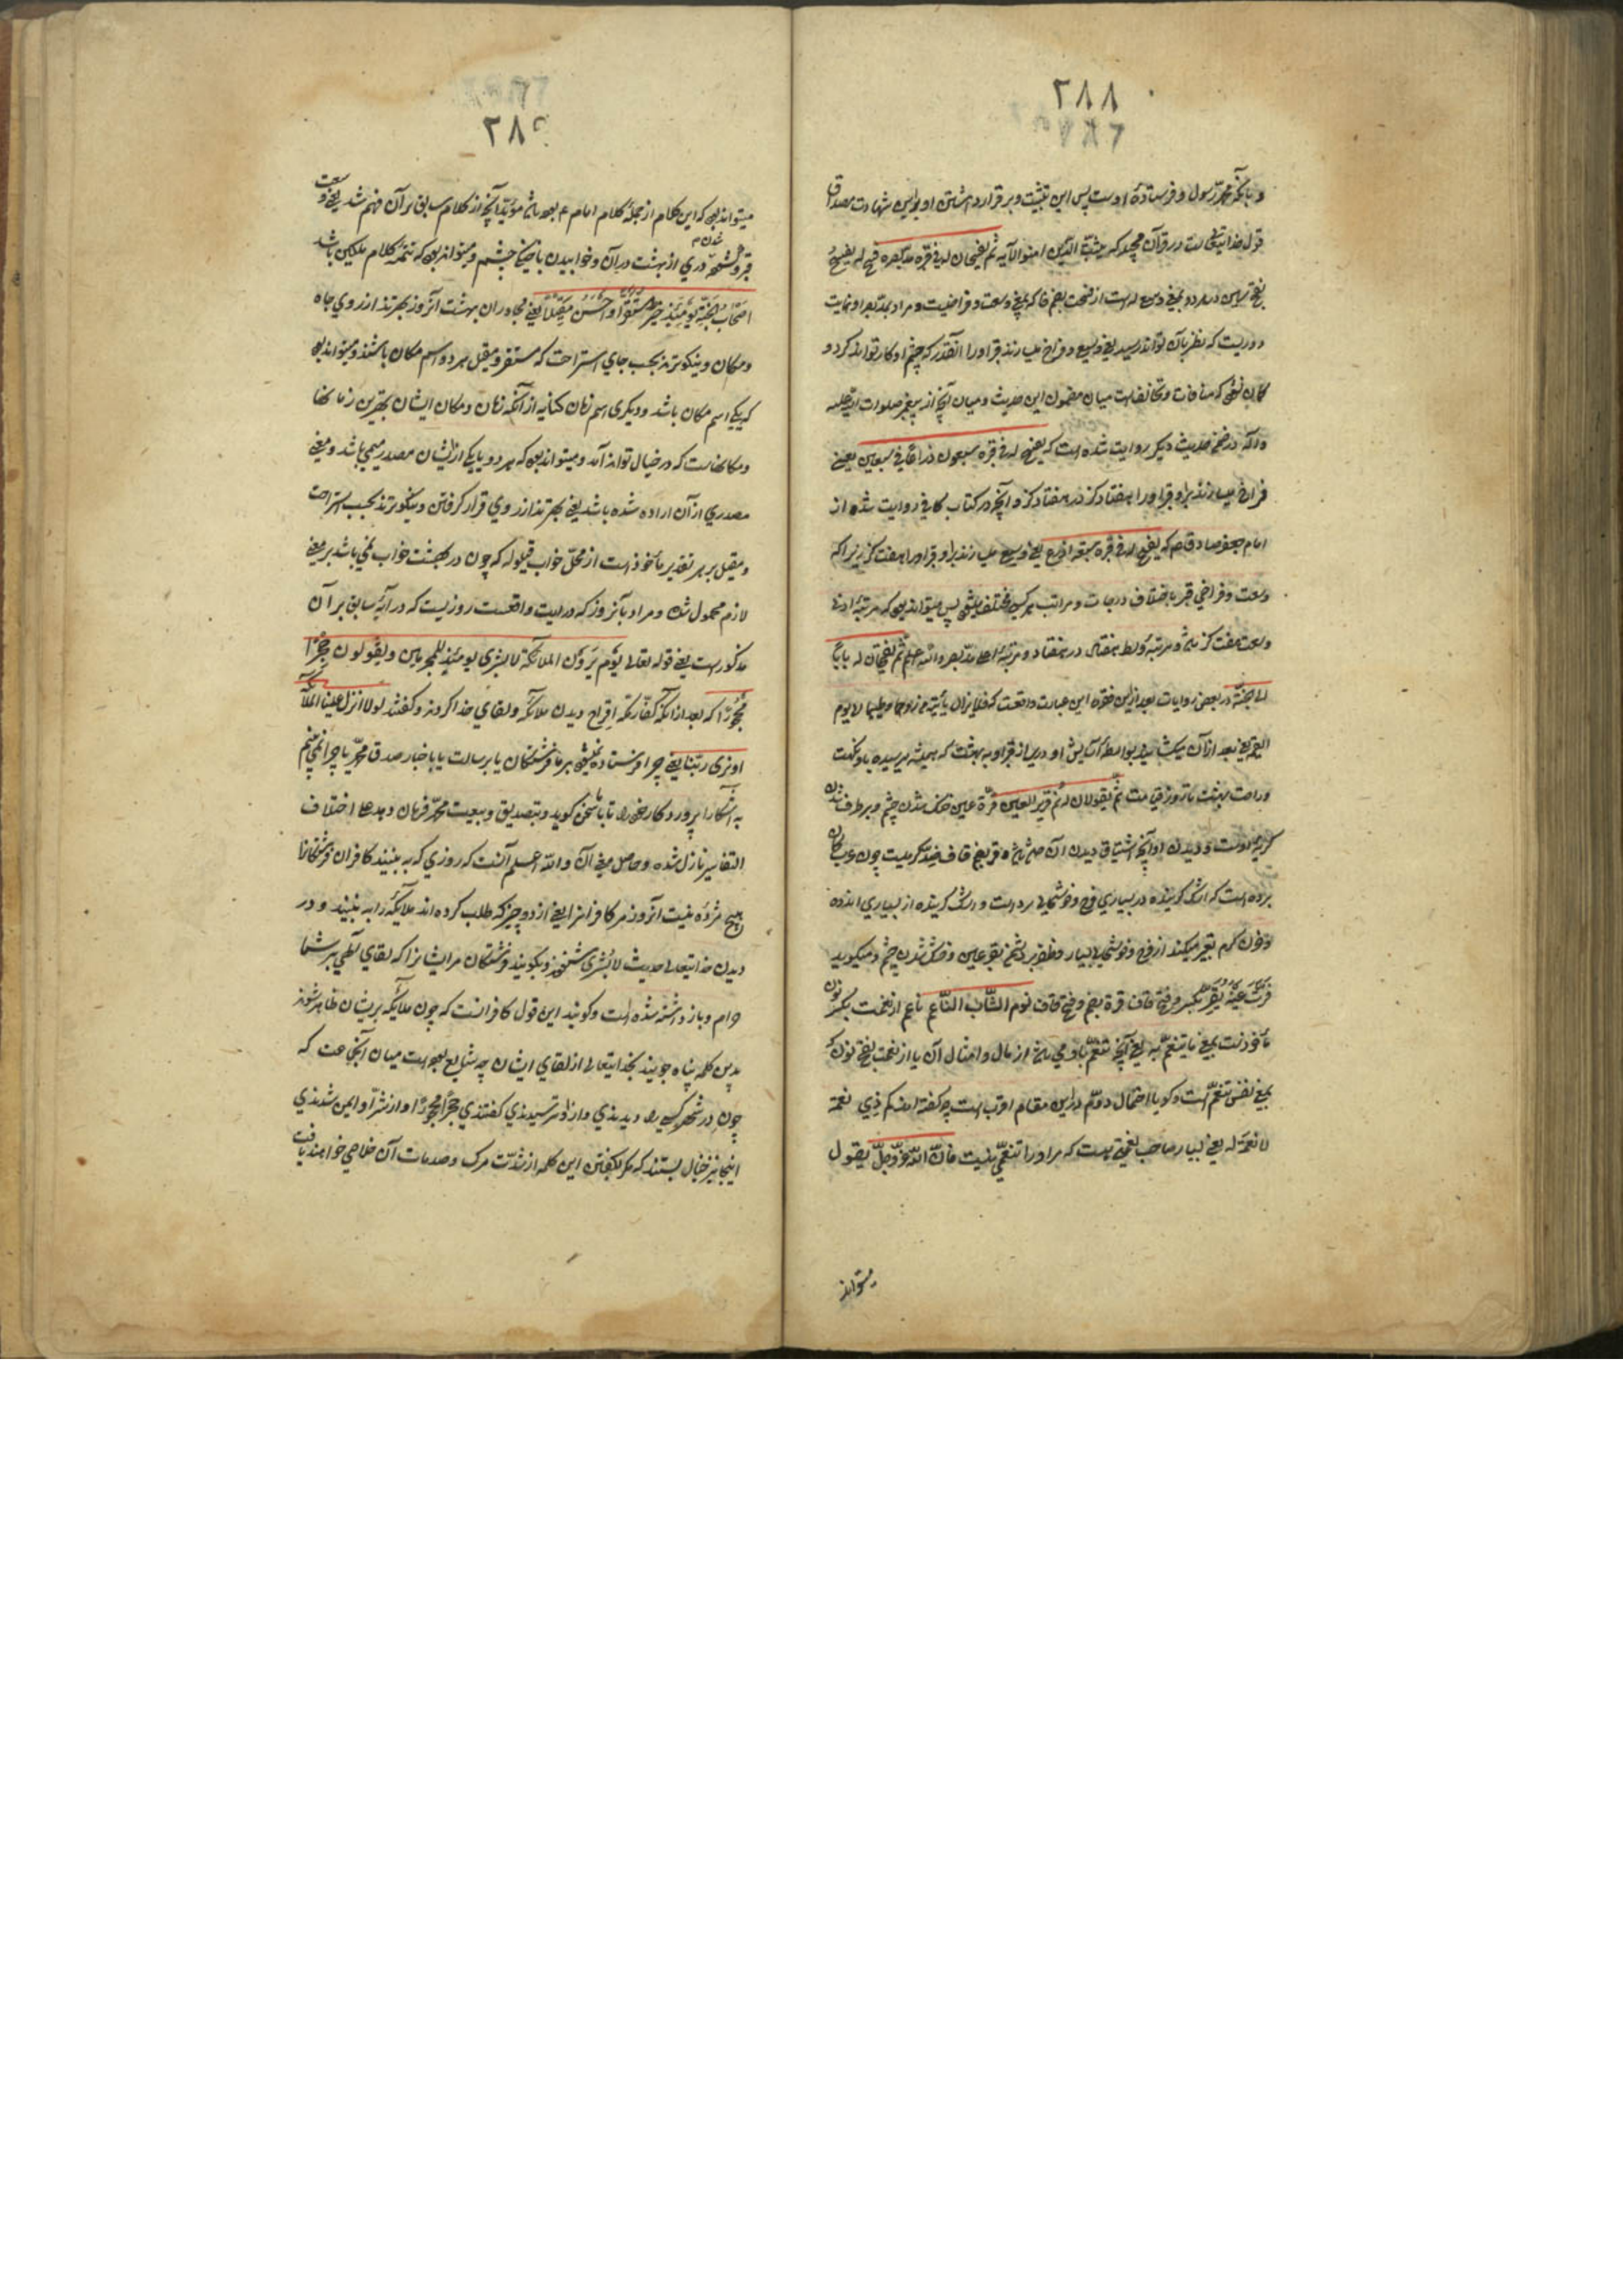 ۲۸۸
و بآنکه محمد رسول و فرستادهٔ اوست پس این تثبیت و برقرار داشتن او بر این شهادت مصداق
قول خدایتعالی است در قرآن مجید که یثبت الله الذین امنوا الآیه ثم یفسحان له فی قبره مد بصره فسح له یفسح
بفتح سین در هر دو بمعنی وسع له است از فسحت بضم فا که بمعنی وسعت و فراخیست و مراد بمد بصر او نهایت
دوریست که نظر بآن تواند رسید یعنی وسیع و فراخ میسازند قبر او را آنقدر که چشم او کار تواند کرد و
گمان نشود که منافات و تخالفست میان مضمون این حدیث و میان آنچه از پیغمبر صلوات الله علیه
و آله در ضمن حدیث دیگر روایت شده است که یفسح له فی قبره سبعون ذراعا فی سبعین یعنی
فراخ میسازند برای او قبر او را هفتاد گز در هفتاد گز و آنچه در کتاب کافی روایت شده از
امام جعفر صادق که یفسح له فی قبره سبعة اذرع یعنی وسیع میسازند برای او قبر او را هفت گز زیرا که
وسعت و فراخی قبر باختلاف درجات و مراتب هر کس مختلف میشود پس میتواند بود که مرتبهٔ ادنی
وسعت هفت گز باشد و مرتبهٔ وسط هفتاد در هفتاد و مرتبهٔ اعلا مد بصر والله اعلم ثم یفتحان له بابا
الی الجنة در بعضی روایات بعد از این فقره این عبارت واقعست که فلا یزال یأتیه من روحها و طیبها الی یوم
القیمة یعنی بعد از آن میگشایند بواسطهٔ آسایش او دری از قبر او به بهشت که همیشه میرسیده باو نکهت
و راحت بهشت تا روز قیامت ثم یقولان له نم قریر العین قرة عین خنک شدن چشم و برطرف شدن
گریهٔ اوست و دیدن او آنچه اشتیاق دیدن آن داشته باشد و قر بضم قاف ضد گرمیست چون عرب گمان
برده است که اشک گریزنده در بسیاری فرح و خوشحالی سرد است و اشک گریزنده از بسیاری اندوه
و حزن گرم تعبیر میکنند از فرح و خوشحالی بسیار و ظفر بر دشمن بقرة عین و خنک شدن چشم و میگوید
قرت عینه تقر بکسر و فتح قاف قرة بضم و فتح قاف نوم الشاب الناعم ناعم از نعمت بکسر نون
مأخوذست بمعنی ما یتنعم به یعنی آنچه تنعم باو می‌باشد از مال و امثال آن یا از نعمت بفتح نون که
بمعنی نفس تنعم است و گویا احتمال دوم در این مقام اقرب است چه گفته اند کم ذی نعمة
لا نعمة له یعنی بسیار صاحب نعمتی هست که مر او را تنعمی نیست فان الله عز و جل یقول
میتواند
۲۸۹
میتواند بود که این کلام از جملهٔ کلام امام ع بوده باشد مؤید آنچه از کلام سابق بر آن فهم شد یعنی وسعت
قبر و گشوده شدن دری از بهشت در آن و خوابیدن با خنکی چشم و میتواند بود که تتمهٔ کلام ملکین باشد
اصحاب الجنة یومئذ خیر مستقرا و احسن مقیلا یعنی مجاوران بهشت آنروز بهترند از روی جاه
و مکان و نیکوترند بحسب جای استراحت که مستقر و مقیل هر دو اسم مکان باشند و میتواند بود
که یکی اسم مکان باشد و دیگری اسم زمان کنایه از آنکه زمان و مکان ایشان بهترین زمانها
و مکانهاست که در خیال تواند آمد و میتواند بود که هر دو یا یکی از ایشان مصدر میمی باشد و معنی
مصدری از آن اراده شده باشد یعنی بهترند از روی قرار گرفتن و نیکوترند بحسب استراحت
و مقیل بر هر تقدیر مأخوذست از محل خواب قیلوله که چون در بهشت خواب نمی‌باشد بر معنی
لازم محمول شده و مراد بآنروز که در این واقعست روزیست که در آیهٔ سابق بر آن
مذکور است یعنی قوله تعالی یوم یرون الملائکة لا بشری یومئذ للمجرمین و یقولون حجرا
محجورا که بعد از آنکه کفار مکه اقتراح دیدن ملائکه و لقای خدا کردند و گفتند لولا انزل علینا الملائکة
او نری ربنا یعنی چرا فرستاده نمیشود بر ما فرشتگان یا برسالت یا باخبار صدق محمد یا چرا نمی‌بینیم
به آشکارا پروردگار خود را تا با ما سخن گوید و بتصدیق و تبعیت محمد فرمان دهد علی اختلاف
التفاسیر نازل شده و حاصل معنی آن والله اعلم آنست که روزی که به بینند کافران فرشتگانرا
هیچ مژده نیست آنروز مر کافرانرا یعنی از دو چیز که طلب کرده اند ملائکه را به بینند و در
دیدن خدایتعالی حدیث لا بشری شنوند و بگویند فرشتگان مر ایشانرا که لقای الهی بر شما
حرام و باز داشته شده است و گویند این قول کافرانست که چون ملائکه بر ایشان ظاهر شوند
بدین کلمه پناه جویند بخدایتعالی از لقای ایشان چه شایع بوده است میان آنجماعت که
چون در شهر کسی را دیدندی و از او ترسیدندی گفتندی حجرا محجورا و از شر او ایمن شدندی
اینجا نیز خیال بستند که مگر بگفتن این کلمه از شدت مرگ و صدمات آن خلاصی خواهند یافت